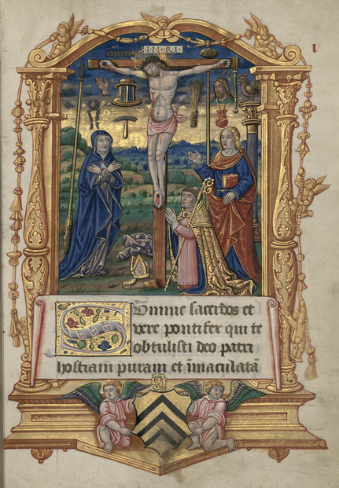 INRI
Summe sacerdos et
vere pontifex qui te
obtulisti deo patri
hostiam puram et īmaculatā